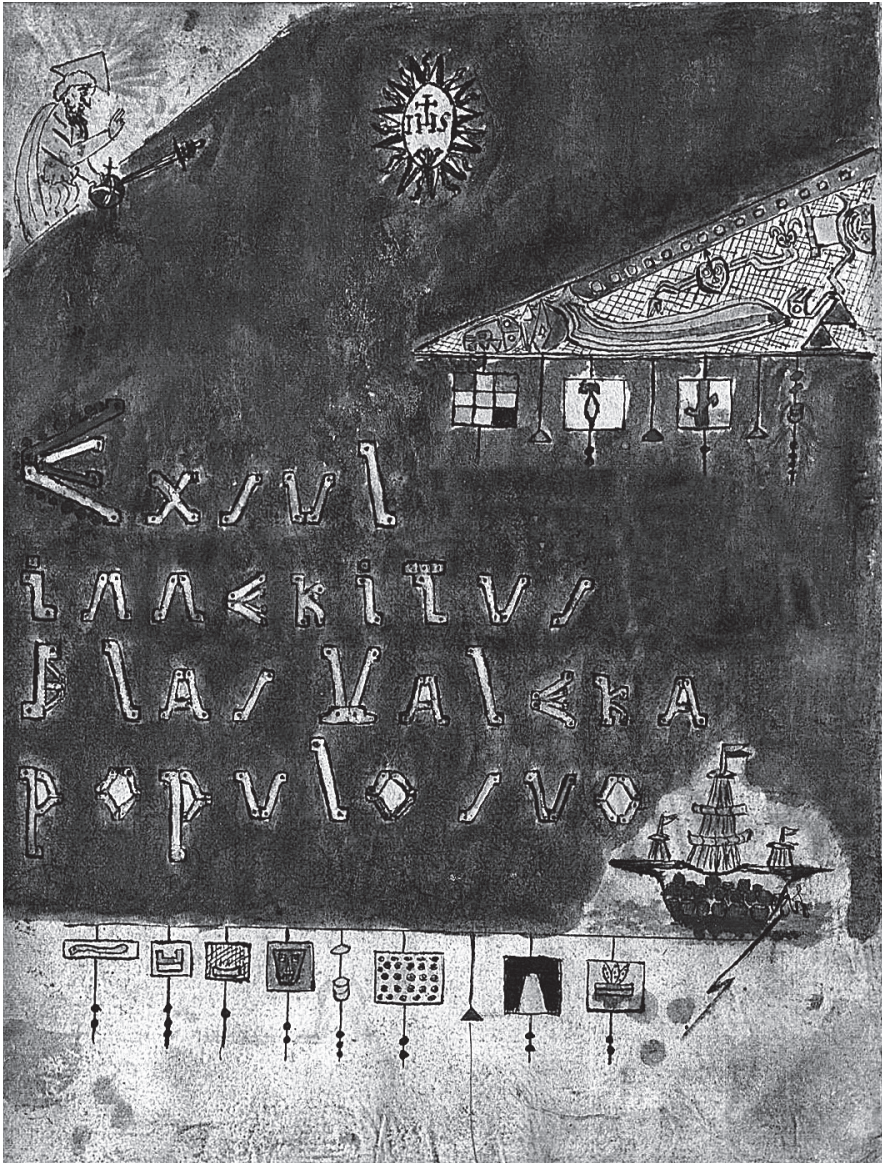 IHS
Exsul
immeritus
Blas Valera
populo suo